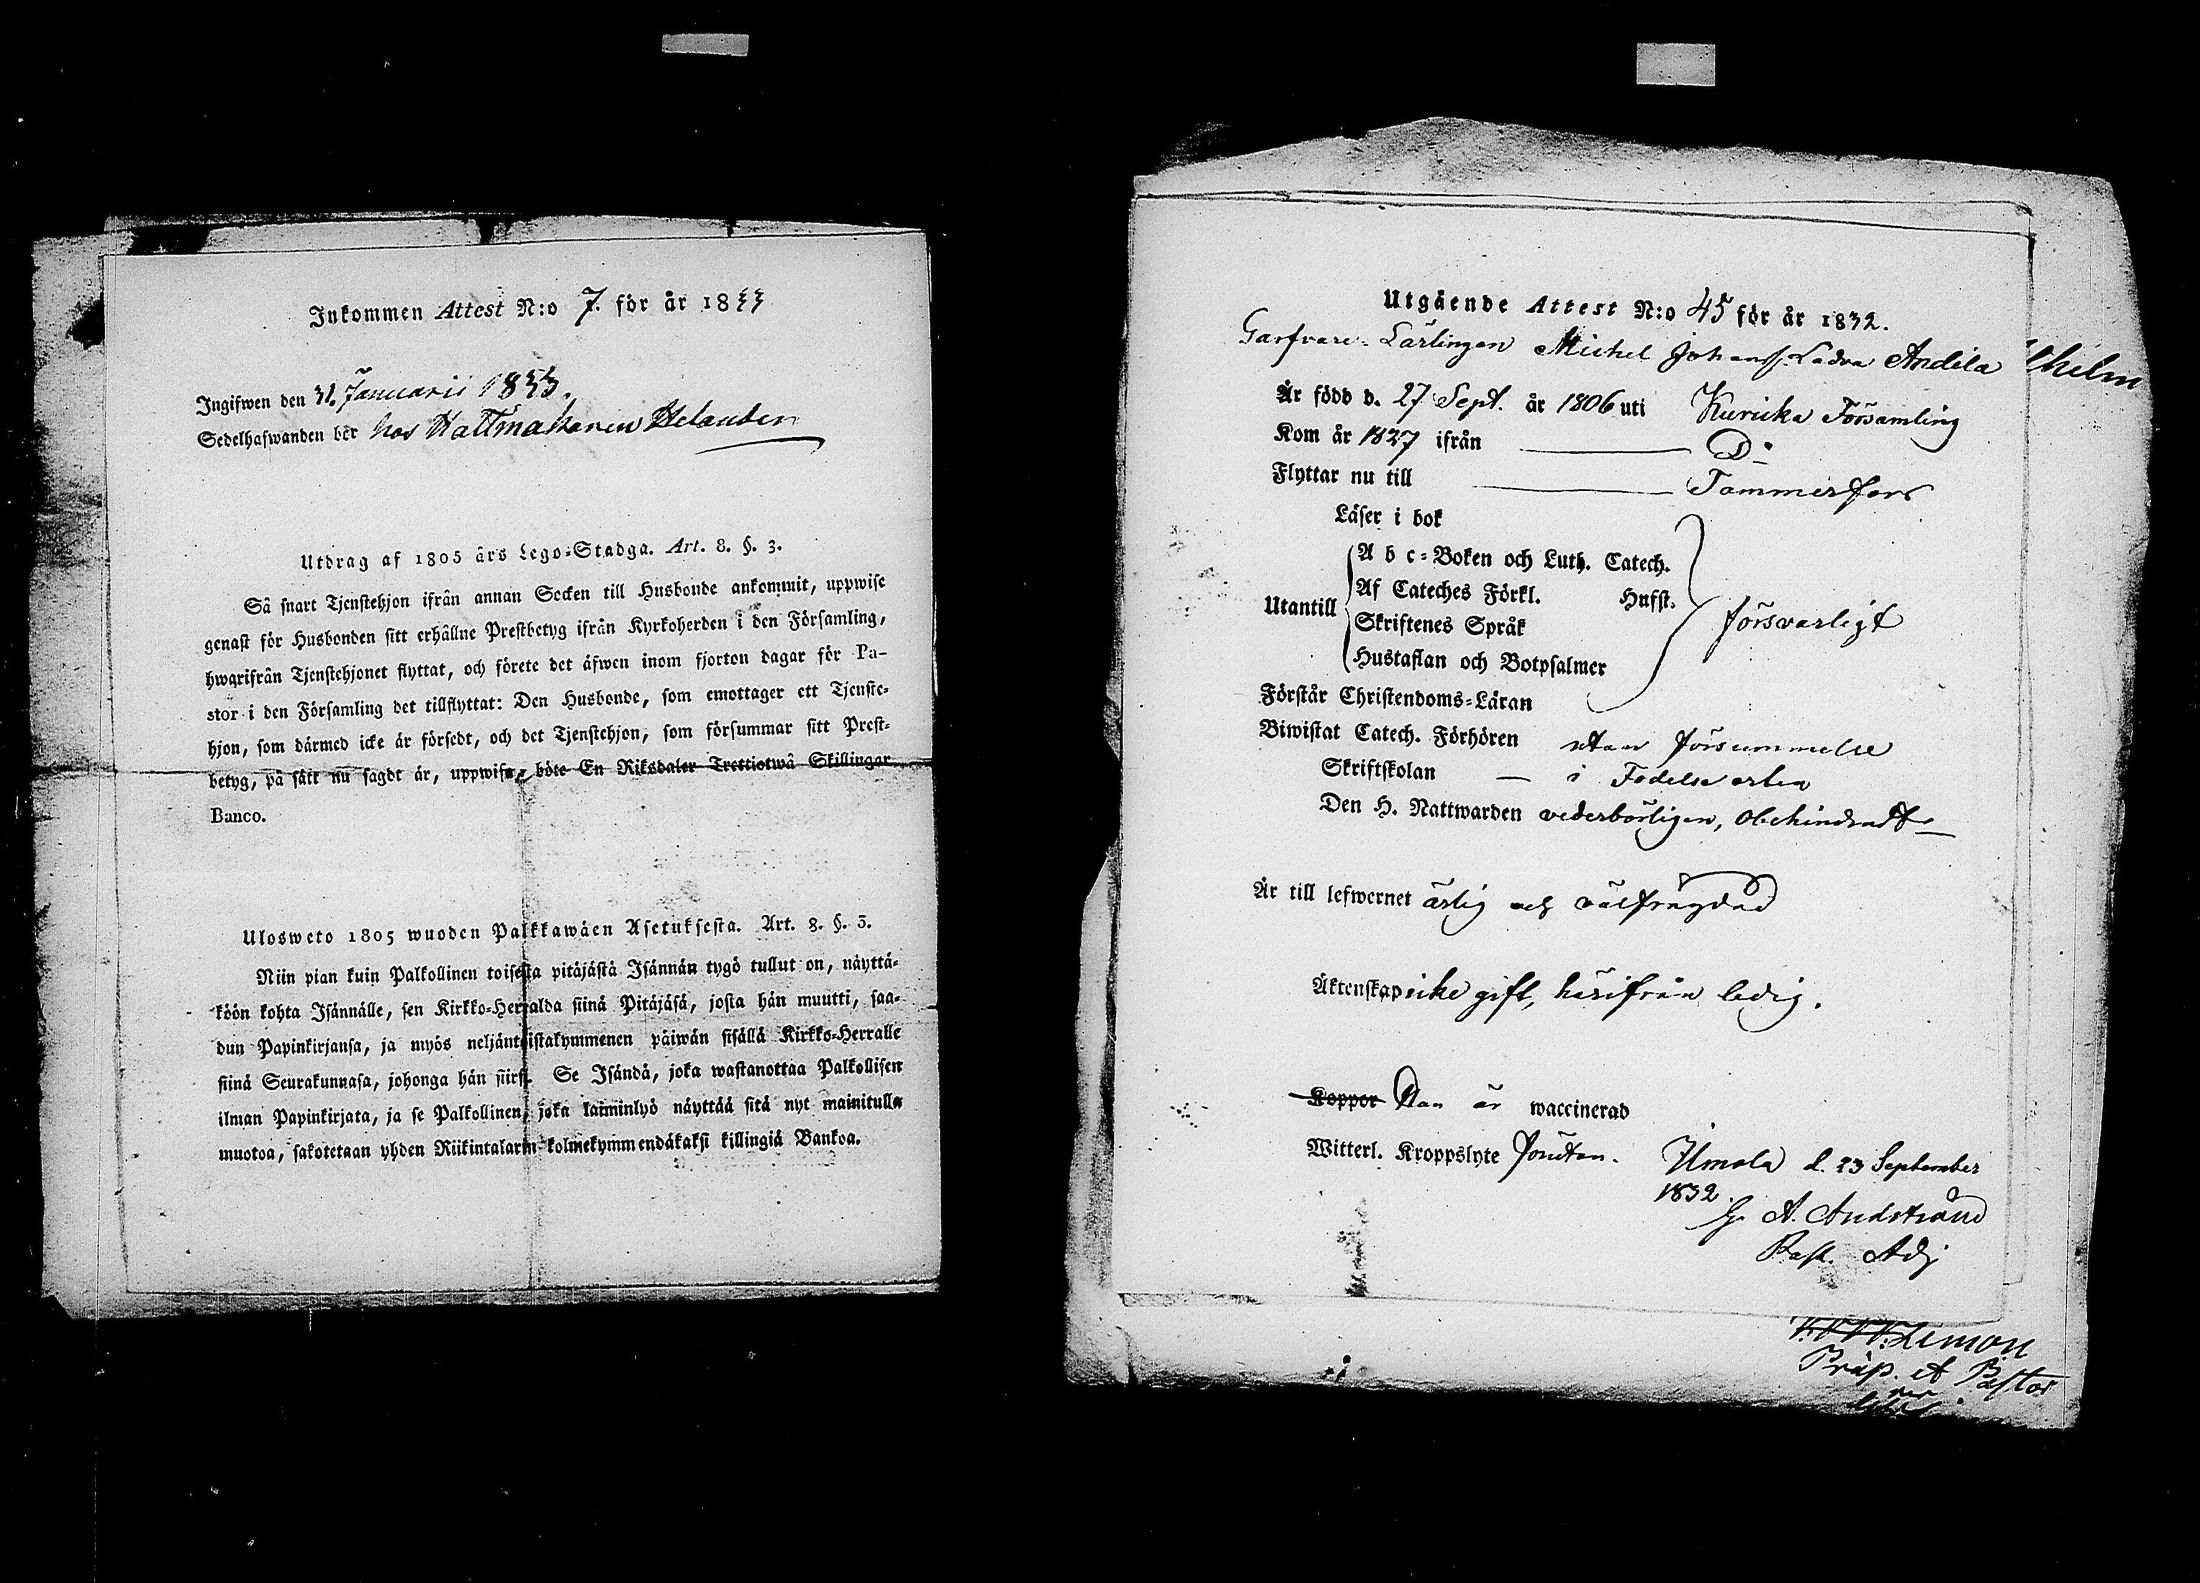 Inkommen Attest N:o 7. för år 1833
Ingifwen den 31. Januarii 1833.
Sedelhafwanden bor hos Hattmakaren Helander
Utdrag af 1805 års Lego-Stadga. Art. 8. §. 3.
Så snart Tjenstehjon ifrån annan Socken till Husbonde ankommit, uppwise
genast för Husbonden sitt erhållne Prestbetyg ifrån Kyrkoherden i den Församling,
hwarifrån Tjenstehjonet flyttat, och förete det äfwen inom fjorton dagar för Pa-
stor i den Församling det tillflyttat: Den Husbonde, som emottager ett Tjenste-
hjon, som därmed icke är försedt, och det Tjenstehjon, som försummar sitt Prest-
betyg, på sätt nu sagdt är, uppwisa, böte En Riksdaler Trettiotwå Skillingar
Banco.
Ulosweto 1805 wuoden Palkkawäen Asetuksesta. Art. 8. §. 3.
Niin pian kuin Palkollinen toisesta pitäjästä Isännän tygö tullut on, näyttä-
köön kohta Isännälle, sen Kirkko-Herralda siinä Pitäjäsä, josta hän muutti, saa-
dun Papinkirjansa, ja myös neljäntoistakymmenen päiwän sisällä Kirkko-Herralle
siinä Seurakunnasa, johonga hän siirsi. Se Isändä, joka wastanottaa Palkollisen
ilman Papinkirjata, ja se Palkollinen, joka laiminlyö näyttää sitä nyt mainitulla
muotoa, sakotetaan yhden Riikintalarin kolmekymmendäkaksi killingiä Bankoa.
Utgående Attest N:o 45 för år 1832.
Garfvare-Lärlingen Michel Johansf. Ladva Andila
lhelm
Är född d. 27 Sept. år 1806 uti Kuricka Församling
Kom år 1827 ifrån D:o
Flyttar nu till Tammerfors
Läser i bok
Utantill
A b c-Boken och Luth. Catech.
Af Cateches Förkl. Husst.
Skriftenes Språk
Hustaflan och Botpsalmer
försvarligt
Förstår Christendoms-Läran
Biwistat Catech. Förhören utan försummelse
Skriftskolan — i Födelseorten
Den H. Nattwarden vederbörligen, obehindradt
Är till lefwernet ärlig och välfrägdad
Äktenskap icke gift, härifrån ledig.
Koppor Han är waccinerad
Witterl. Kroppslyte förutan.
Ilmola d. 23 September
1832.
G. A. Andstrand
Past. Adj
Limon
Präp. et Pastor